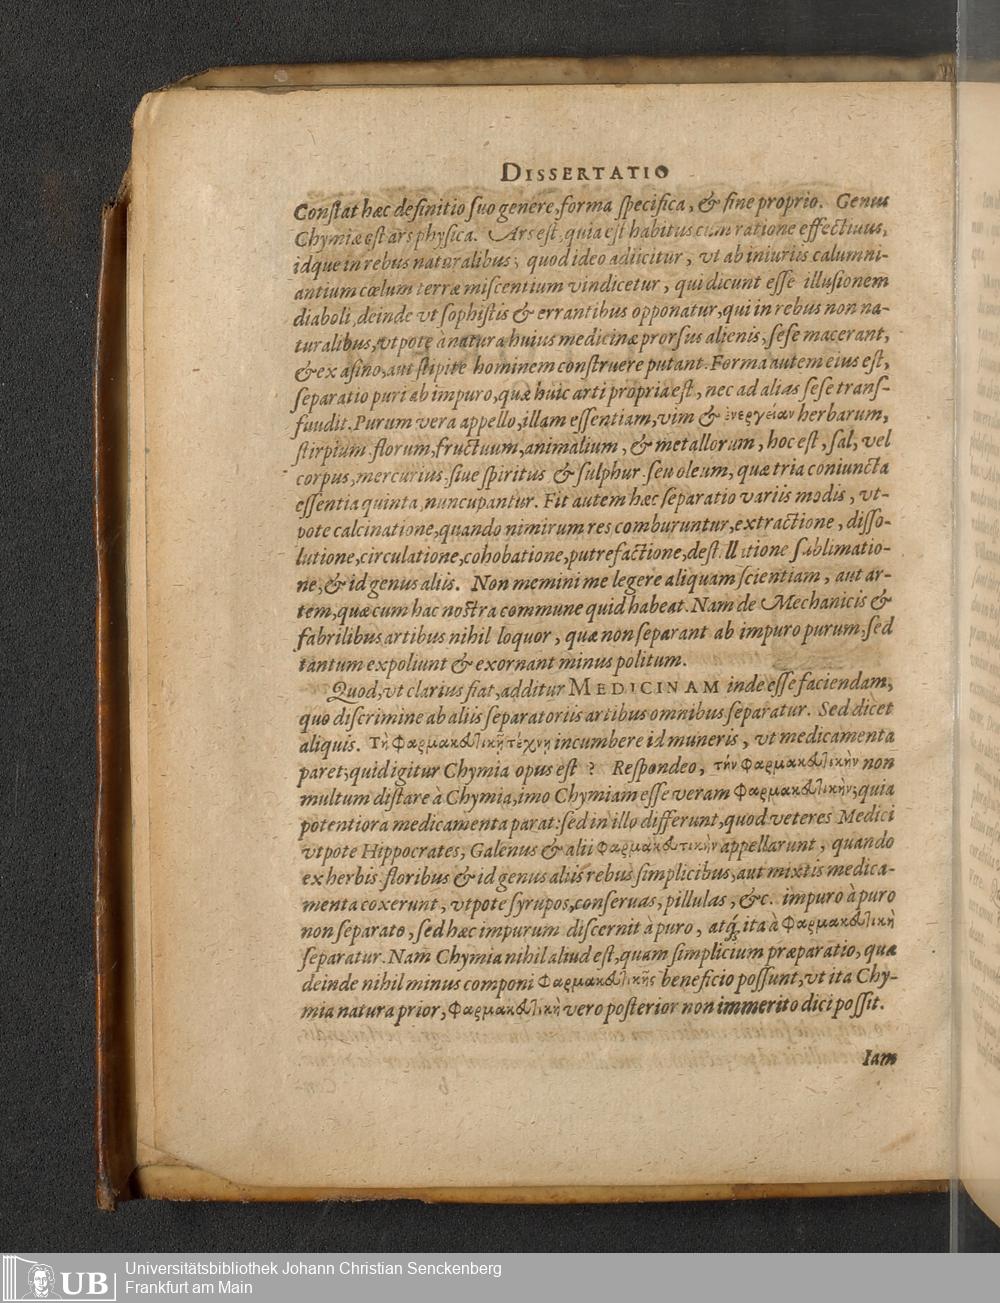 DISSERTATIO
Constat hæc definitio suo genere, forma specifica, & fine proprio. Genus
Chymiæ est ars physica. Ars est, quia est habitus cum ratione effectiuus,
idque in rebus naturalibus; quod ideo adiicitur, vt ab iniuriis calumni-
antium cœlum terræ miscentium vindicetur, qui dicunt esse illusionem
diaboli, deinde vt sophistis & errantibus opponatur, qui in rebus non na-
turalibus, vtpote à natura huius medicinæ prorsus alienis, sese macerant,
& ex asino, aut stipite hominem construere putant. Forma autem eius est,
separatio puri ab impuro, quæ huic arti propria est, nec ad alias sese trans-
fundit. Purum vera appello, illam essentiam, vim & ἐνεργείαν herbarum,
stirpium florum, fructuum, animalium, & metallorum, hoc est, sal, vel
corpus, mercurius, siue spiritus & sulphur seu oleum, quæ tria coniuncta
essentia quinta nuncupantur. Fit autem hæc separatio variis modis, vt-
pote calcinatione, quando nimirum res comburuntur, extractione, disso-
lutione, circulatione, cohobatione, putrefactione, destillatione sublimatio-
ne, & id genus aliis. Non memini me legere aliquam scientiam, aut ar-
tem, quæ cum hac nostra commune quid habeat. Nam de Mechanicis &
fabrilibus artibus nihil loquor, quæ non separant ab impuro purum, sed
tantum expoliunt & exornant minus politum.
Quod, vt clarius fiat, additur MEDICINAM inde esse faciendam,
quo discrimine ab aliis separatoriis artibus omnibus separatur. Sed dicet
aliquis. Τῇ φαρμακευτικῇ τέχνῃ incumbere id muneris, vt medicamenta
paret; quid igitur Chymia opus est? Respondeo, τὴν φαρμακευτικὴν non
multum distare à Chymia, imo Chymiam esse veram φαρμακευτικὴν; quia
potentiora medicamenta parat: sed in illo differunt, quod veteres Medici
vtpote Hippocrates, Galenus & alii φαρμακευτικὴν appellarunt, quando
ex herbis floribus & id genus aliis rebus simplicibus, aut mixtis medica-
menta coxerunt, vtpote syrupos, conseruas, pillulas, &c. impuro à puro
non separato, sed hæc impurum discernit à puro, atq́; ita à φαρμακευτικῇ
separatur. Nam Chymia nihil aliud est, quam simplicium præparatio, quæ
deinde nihil minus componi φαρμακευτικῆς beneficio possunt, vt ita Chy-
mia natura prior, φαρμακευτικὴ vero posterior non immerito dici possit.
Iam
UB
Universitätsbibliothek Johann Christian Senckenberg
Frankfurt am Main